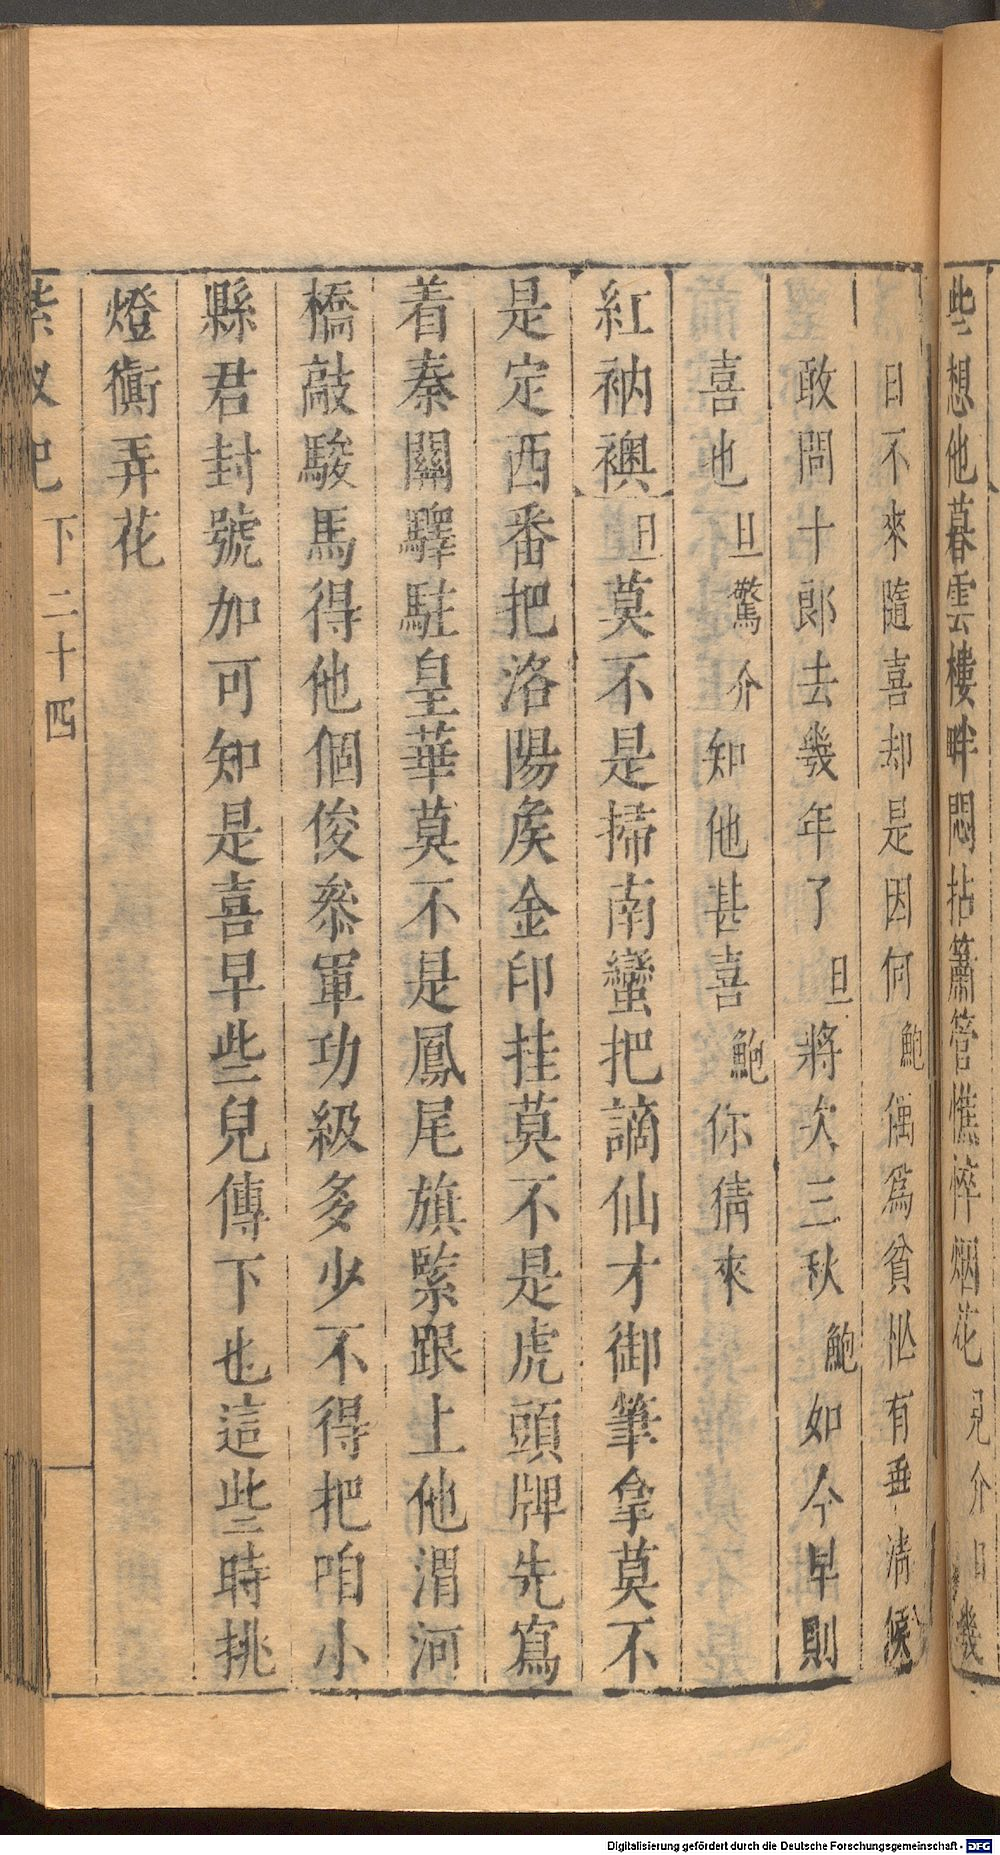 些想他暮雲樓畔悶拈簫管憔悴烟花見介旦幾
日不來隨喜却是因何鮑偶爲貧忙有乖清候
敢問十郎去幾年了旦將次三秋鮑如今早則
喜也旦驚介知他甚喜鮑你猜來
紅衲襖旦莫不是掃南蠻把謫仙才御筆拿莫不
是定西番把洛陽矦金印挂莫不是虎頭牌先寫
着秦關驛駐皇華莫不是鳳尾旗緊跟上他渭河
橋敲駿馬得他個俊叅軍功級多少不得把咱小
縣君封號加可知是喜早些兒傳下也這些時挑
燈衠弄花
紫釵記 下 二十四
Digitalisierung gefördert durch die Deutsche Forschungsgemeinschaft - DFG